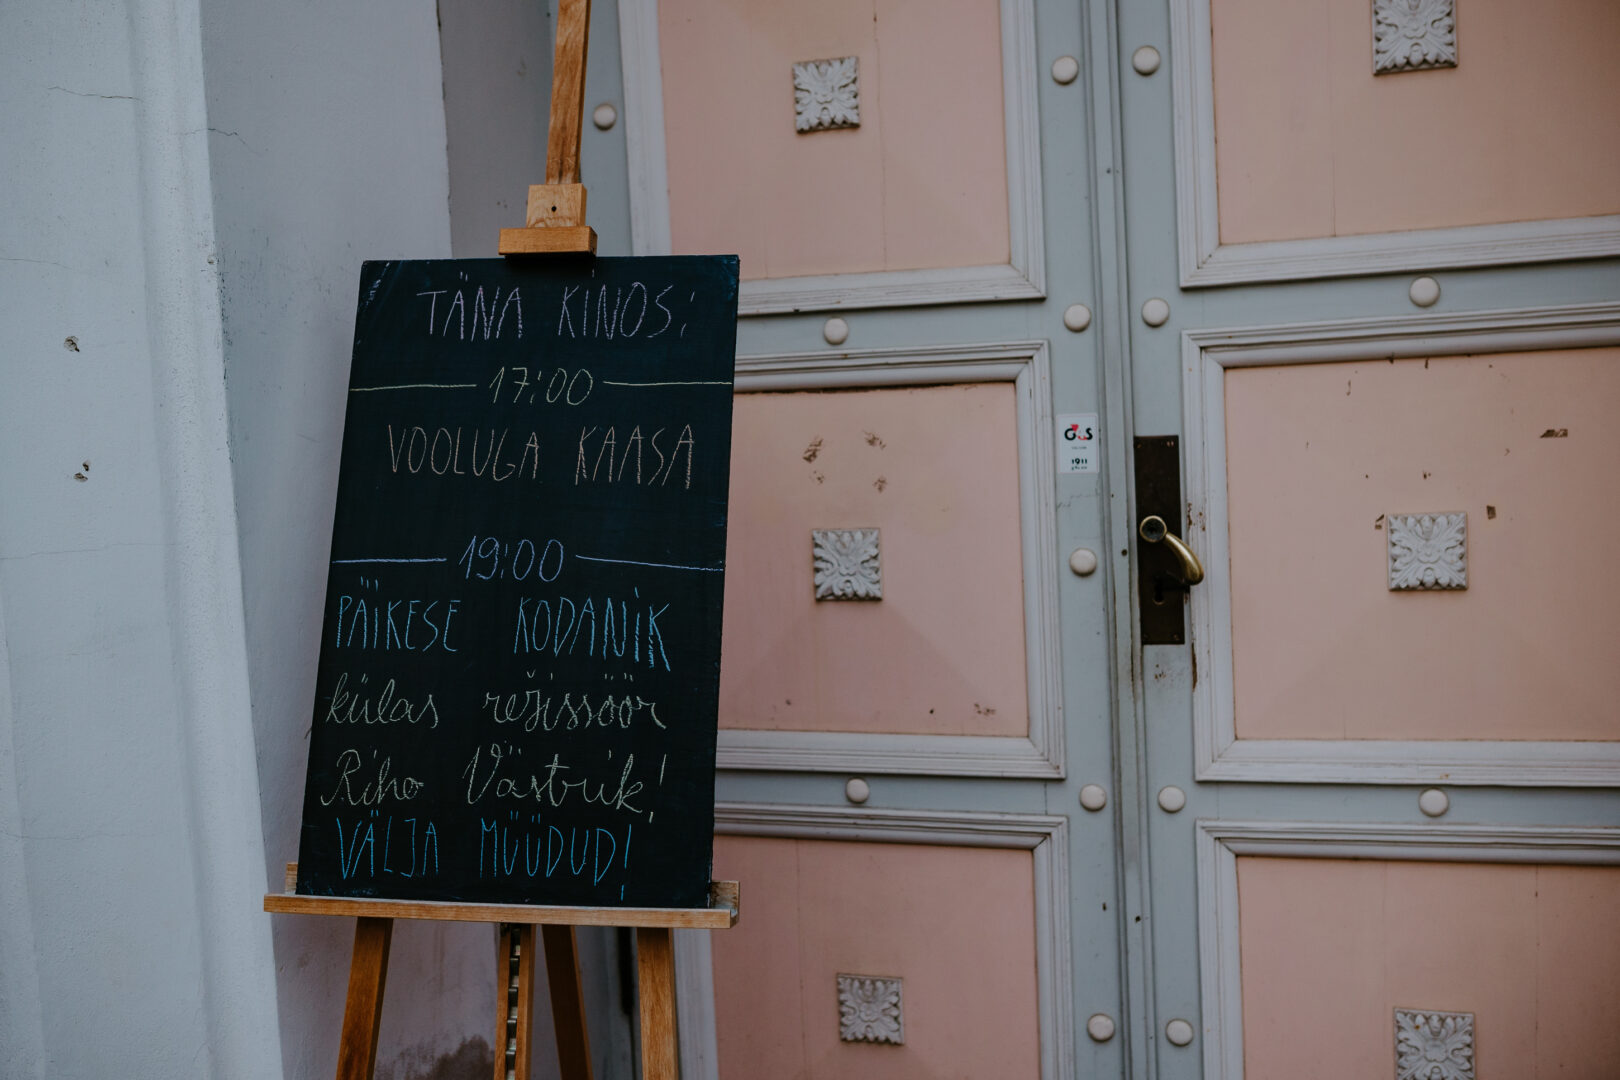 TÄNA KINOS:
17:00
VOOLUGA KAASA
19:00
PÄIKESE KODANIK
külas režissöör
Riho Västrik!
VÄLJA MÜÜDUD!
G4S
1911